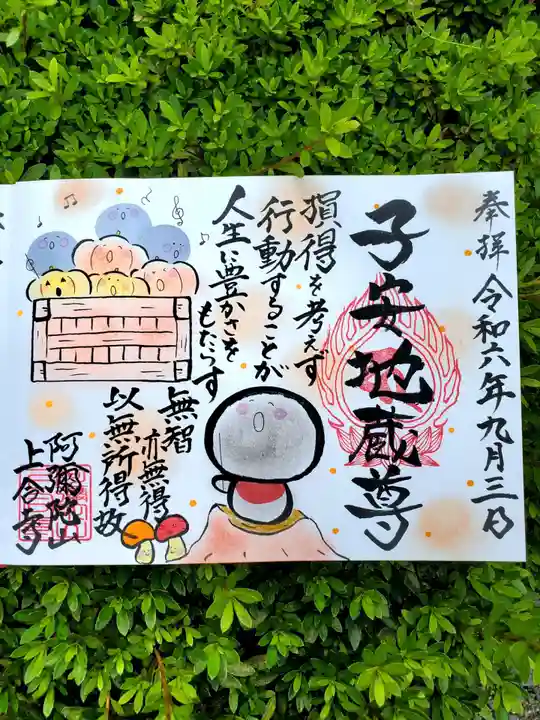 奉拝 令和六年九月三日
子安地蔵尊
損得を考えず
行動することが
人生に豊かさを
もたらす
無智
亦無得
以無所得故
阿彌陀山
上合寺